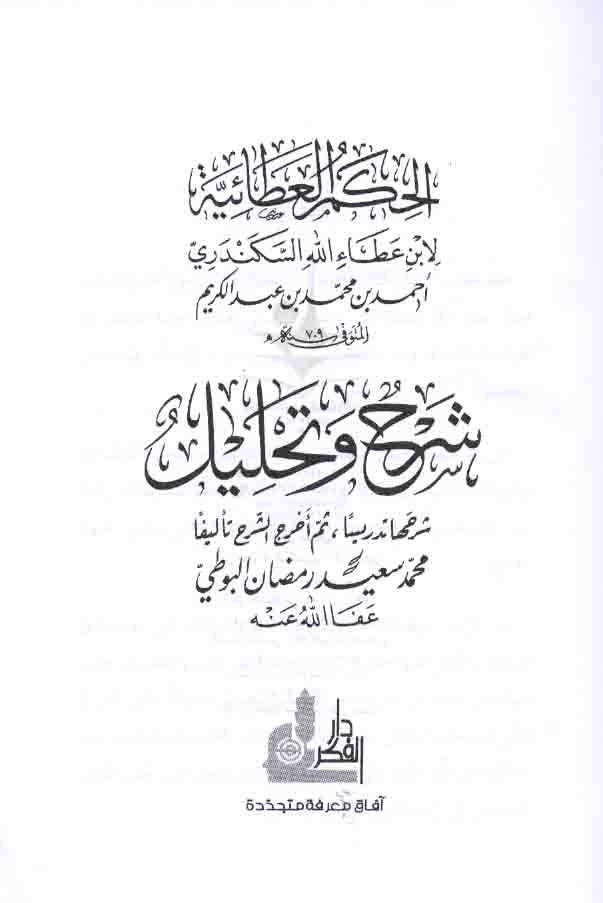 الحِكَمُ العَطَائِيَّة
لِابْنِ عَطَاءِ اللهِ السَّكَنْدَرِيّ
أحمد بن محمّد بن عبد الكريم
المُتَوَفَّى سنة ٧٠٩ هـ
شَرْحٌ وَتَحْلِيلٌ
شرحها تدريسًا، ثمّ أخرج الشرح تأليفًا
محمّد سعيد رمضان البوطيّ
عَفَا اللهُ عَنْه
دار
الفكر
آفاق معرفة متجدّدة